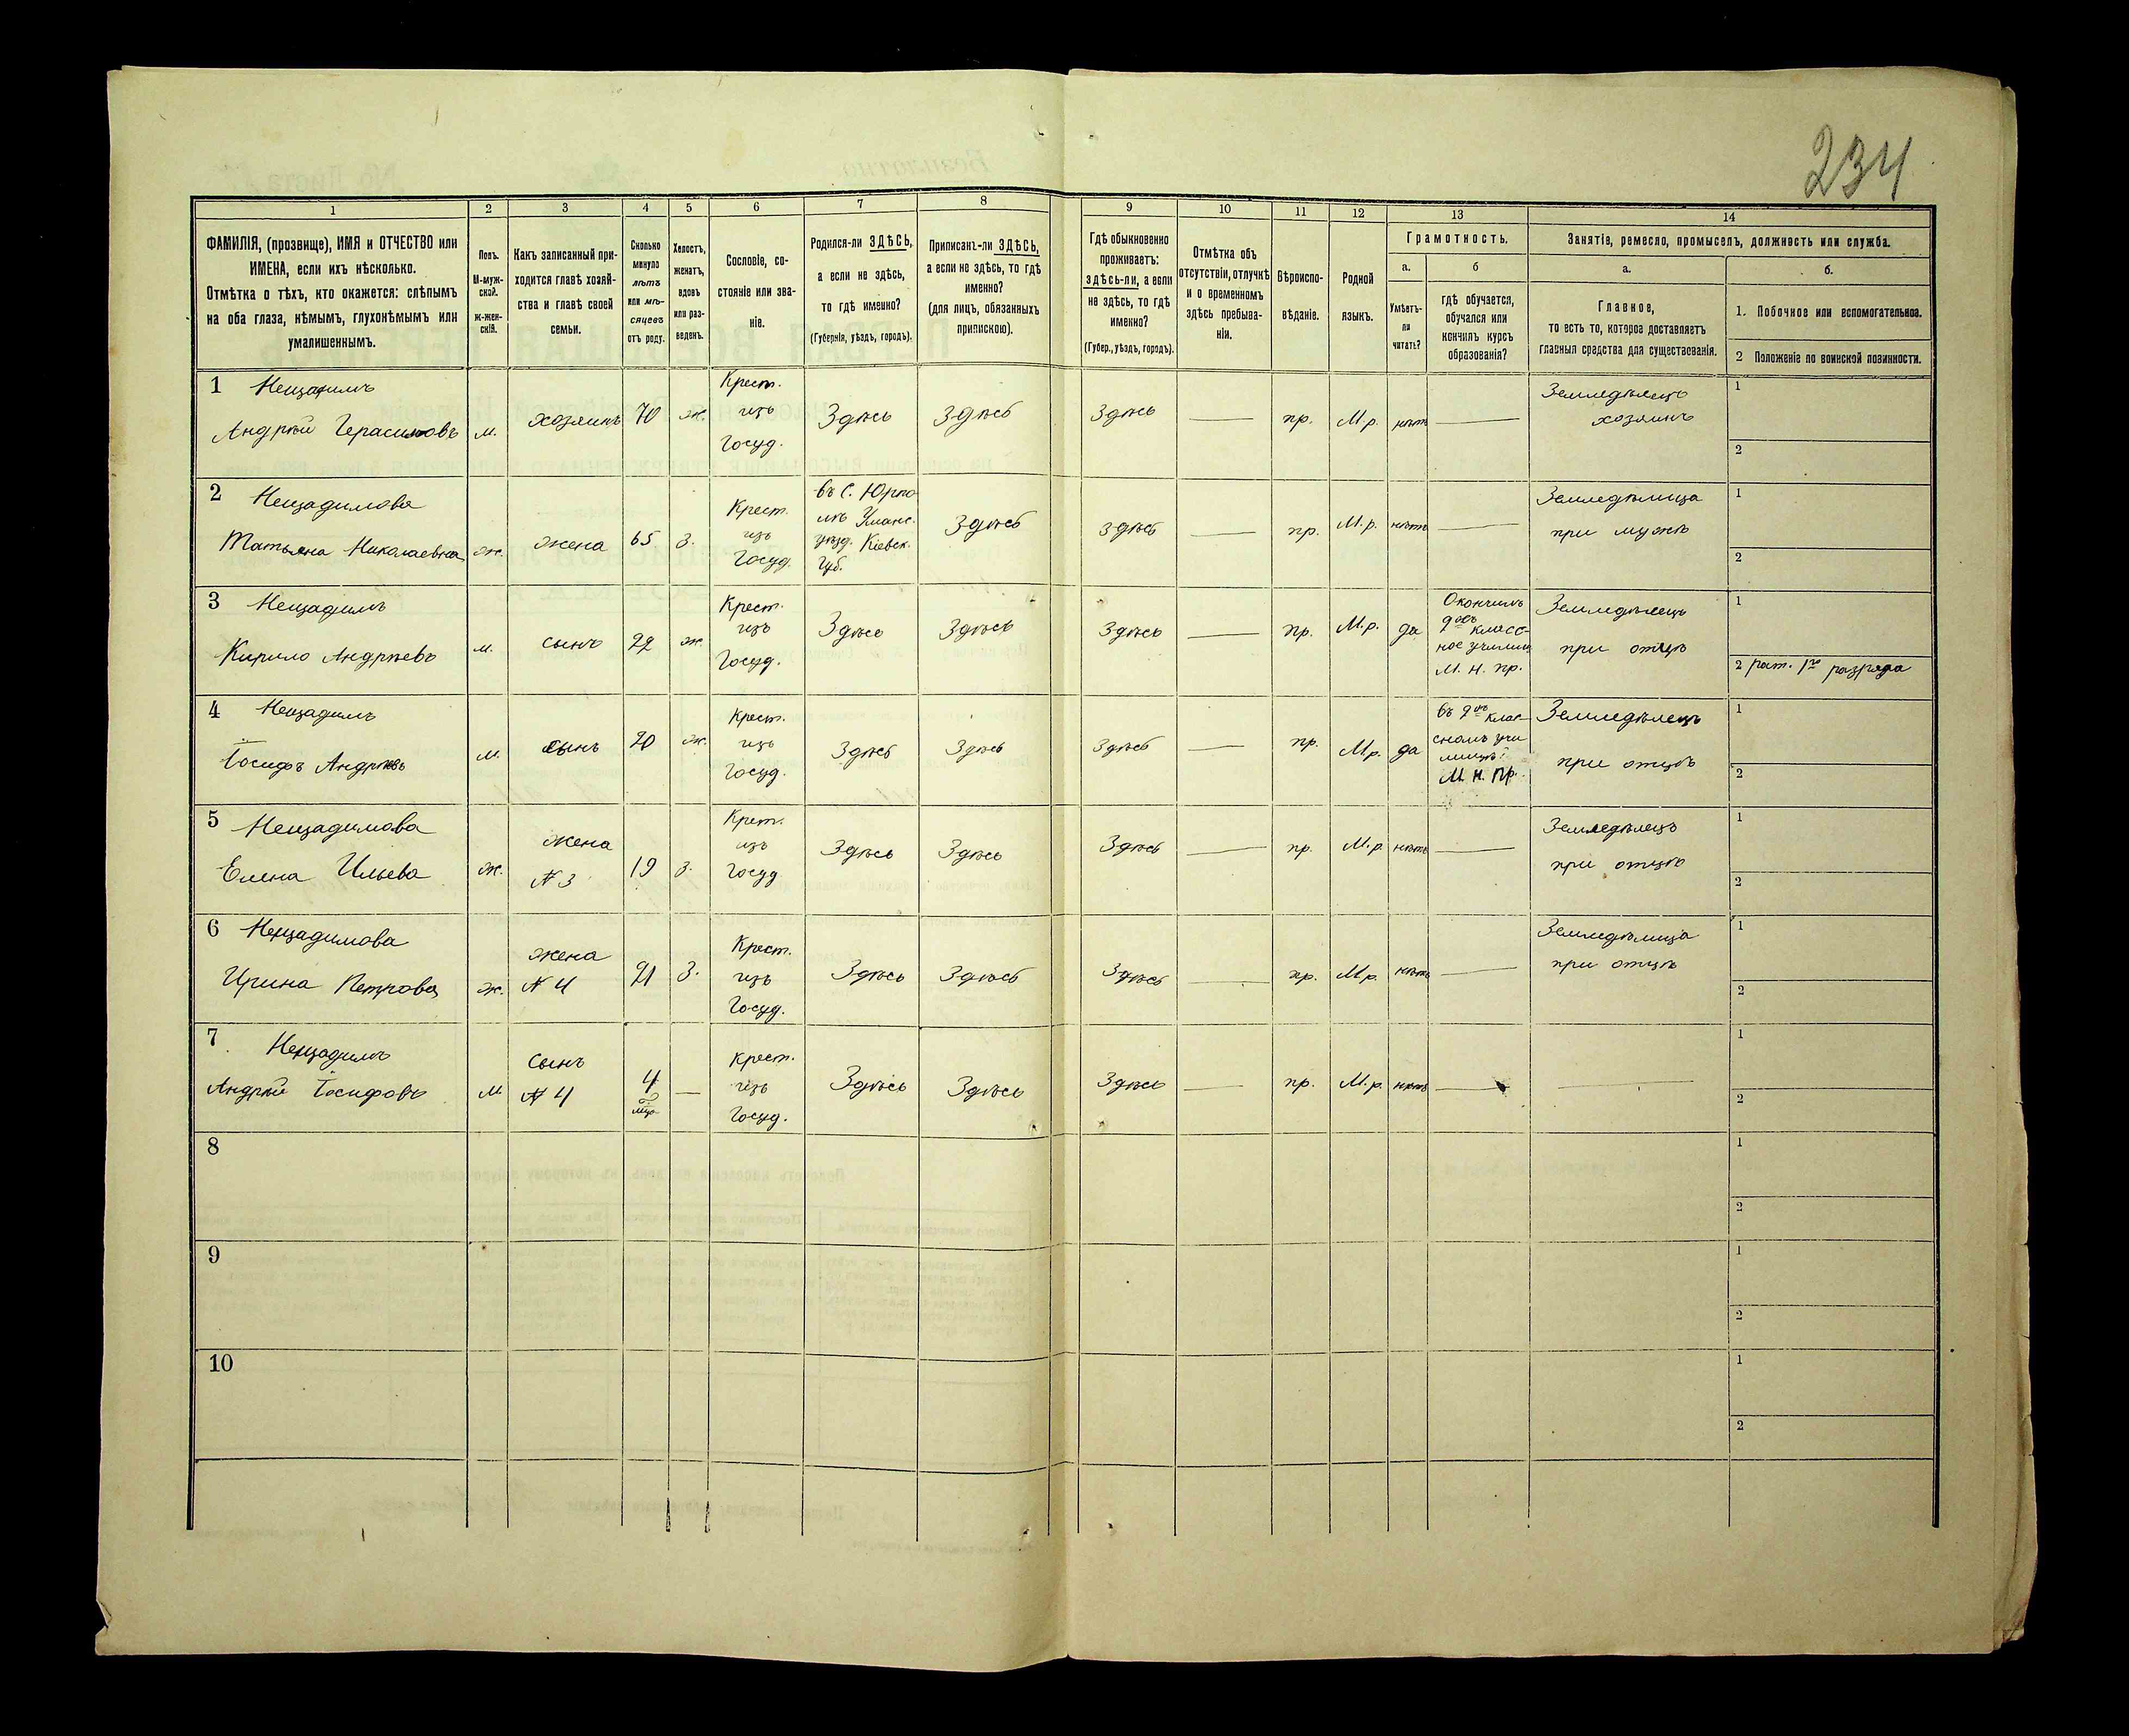 234
1
2
3
4
5
6
7
8
9
10
11
12
13
14
ФАМИЛІЯ, (прозвище), ИМЯ и ОТЧЕСТВО или
ИМЕНА, если ихъ нѣсколько.
Отмѣтка о тѣхъ, кто окажется: слѣпымъ
на оба глаза, нѣмымъ, глухонѣмымъ или
умалишеннымъ.
Полъ.
М-муж-
ской.
ж-жен-
скій.
Какъ записанный при-
ходится главѣ хозяй-
ства и главѣ своей
семьи.
Сколько
минуло
лѣтъ
или мѣ-
сяцевъ
отъ роду.
Холостъ,
женатъ,
вдовъ
или раз-
веденъ.
Сословіе, со-
стояніе или зва-
ніе.
Родился-ли ЗДѢСЬ,
а если не здѣсь,
то гдѣ именно?
(Губернія, уѣздъ, городъ).
Приписанъ-ли ЗДѢСЬ,
а если не здѣсь, то гдѣ
именно?
(для лицъ, обязанныхъ
припискою).
Гдѣ обыкновенно
проживаетъ:
здѣсь-ли, а если
не здѣсь, то гдѣ
именно?
(Губер., уѣздъ, городъ).
Отмѣтка объ
отсутствіи, отлучкѣ
и о временномъ
здѣсь пребыва-
ніи.
Вѣроиспо-
вѣданіе.
Родной
языкъ.
Грамотность.
а.
Умѣетъ-
ли
читать?
б
гдѣ обучается,
обучался или
кончилъ курсъ
образованія?
Занятіе, ремесло, промыселъ, должность или служба.
а.
Главное,
то есть то, которое доставляетъ
главныя средства для существованія.
б.
1. Побочное или вспомогательное.
2 Положеніе по воинской повинности.
1 Нещадимъ
Андрѣй Герасимовъ
м.
хозяинъ
70
ж.
Крест.
изъ
Госуд.
Здѣсь
Здѣсь
Здѣсь
пр.
М.р.
нѣтъ
Земледѣлецъ
хозяинъ
1
2
2 Нещадимова
Татьяна Николаевна
ж.
жена
65
З.
Крест.
изъ
Госуд.
въ С. Юрпо
лѣ Уманс.
уѣзд. Кіевск.
Губ.
Здѣсь
Здѣсь
пр.
М.р.
нѣтъ
Земледѣлица
при мужѣ
1
2
3 Нещадимъ
Кирило Андрѣевъ
м.
сынъ
22
ж.
Крест.
изъ
Госуд.
Здѣсь
Здѣсь
Здѣсь
пр.
М.р.
да
Окончилъ
2хъ класс-
ное училищ
М. Н. пр.
Земледѣлецъ
при отцѣ
1
2 рат. 1го разряда
4 Нещадимъ
Іосифъ Андрѣевъ
м.
сынъ
20
ж.
Крест.
изъ
Госуд.
Здѣсь
Здѣсь
Здѣсь
пр.
М.р.
да
въ 2хъ клас-
сномъ учи
лищѣ
М. Н. Пр.
Земледѣлецъ
при отцѣ
1
2
5 Нещадимова
Елена Ильева
ж.
жена
№ 3
19
З.
Крест.
изъ
Госуд
Здѣсь
Здѣсь
Здѣсь
пр.
М.р.
нѣтъ
Земледѣлецъ
при отцѣ
1
2
6 Нещадимова
Ирина Петрова
ж.
жена
№ 4
21
З.
Крест.
изъ
Госуд.
Здѣсь
Здѣсь
Здѣсь
пр.
М.р.
нѣтъ
Земледѣлица
при отцѣ
1
2
7 Нещадимъ
Андрѣй Іосифовъ
м
Сынъ
№ 4
4
мѣс
Крест.
изъ
Госуд.
Здѣсь
Здѣсь
Здѣсь
пр.
М.р.
нѣтъ
1
2
8
1
2
9
1
2
10
1
2